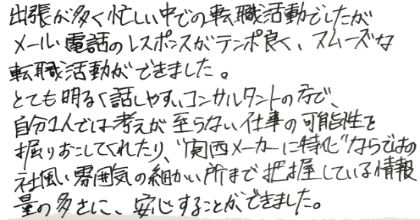 出張が多く忙しい中での転職活動でしたが
メール・電話のレスポンスがテンポ良く、スムーズな
転職活動ができました。
とても明るく話しやすいコンサルタントの方で、
自分1人では考えが至らない仕事の可能性を
掘りおこしてくれたり、"関西メーカーに特化"ならではの
社風い雰囲気の細かい所まで把握している情報
量の多さに、安心することができました。